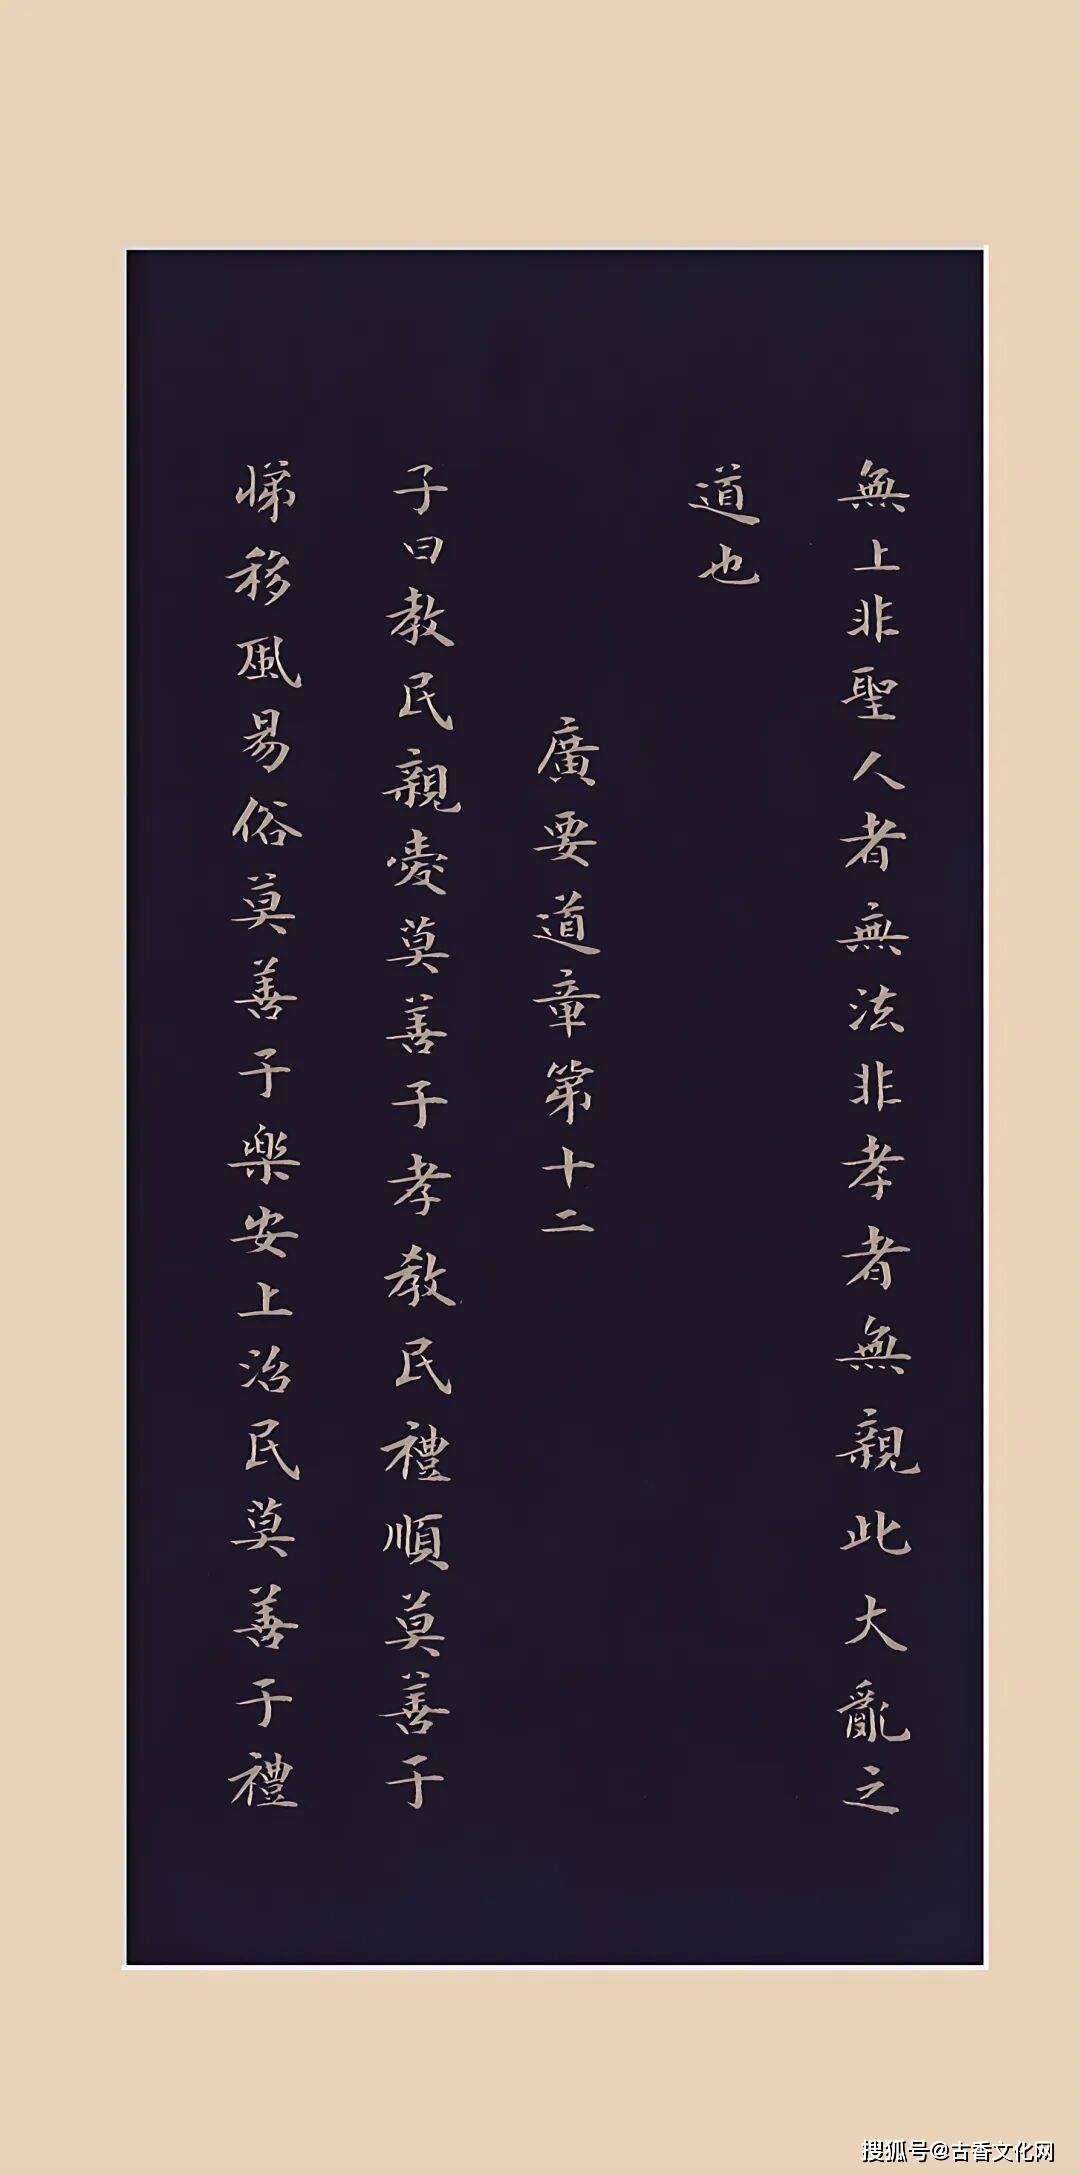 無上非聖人者無法非孝者無親此大亂之
道也
廣要道章第十二
子曰教民親愛莫善于孝教民禮順莫善于
悌移風易俗莫善于樂安上治民莫善于禮
搜狐号@古香文化网